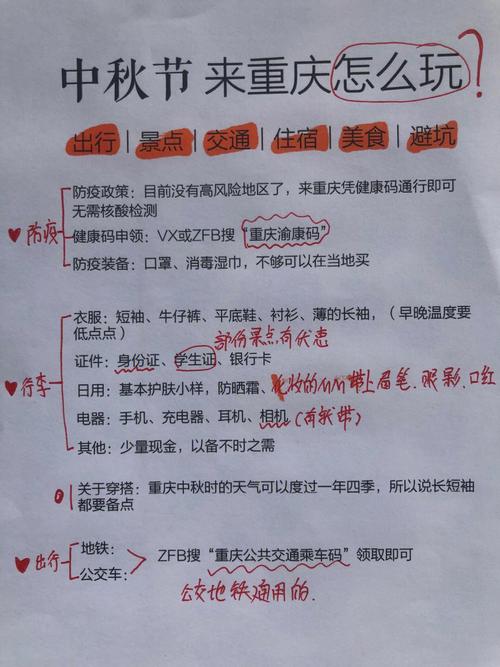 中秋节 来重庆怎么玩?
出行 | 景点 | 交通 | 住宿 | 美食 | 避坑
防疫政策：目前没有高风险地区了，来重庆凭健康码通行即可
无需核酸检测
防疫
健康码申领：VX或ZFB搜“重庆渝康码”
防疫装备：口罩、消毒湿巾，不够可以在当地买
衣服：短袖、牛仔裤、平底鞋、衬衫、薄的长袖，（早晚温度要
低点点）
部份景点有优惠
证件：身份证、学生证、银行卡
行李
日用：基本护肤小样，防晒霜、化妆的MM带上眉笔.眼影.口红
电器：手机、充电器、耳机、相机(有就带)
其他：少量现金，以备不时之需
关于穿搭：重庆中秋时的天气可以度过一年四季，所以说长短袖
都要备点
地铁：
出行
ZFB搜“重庆公共交通乘车码”领取即可
公交车：
公交地铁通用的.